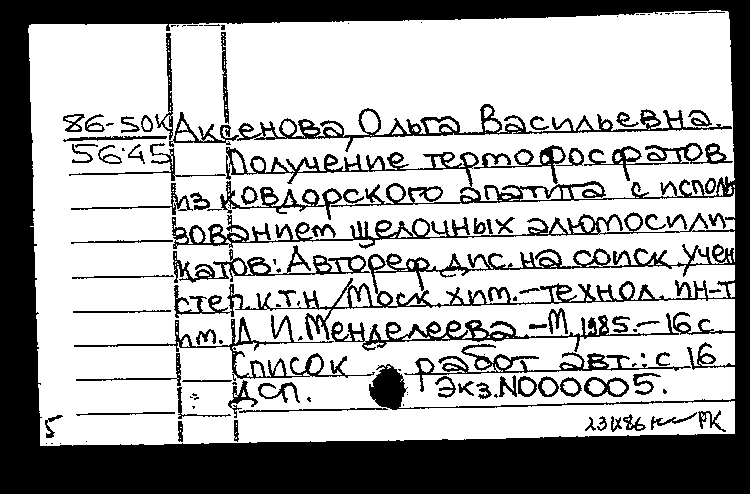 86-50к Аксенова, Ольга Васильевна.
56.45 Получение термофосфатов
из ковдорского апатита с исполь
зованием щелочных алюмосили-
катов: Автореф. дис. на соиск. учен
степ. к.т.н / Моск. хим.-технол. ин-т
им. Д. И. Менделеева. - М., 1985. - 16 с.
Список работ авт.: с. 16.
ДСП. Экз.N000005.
5 РК